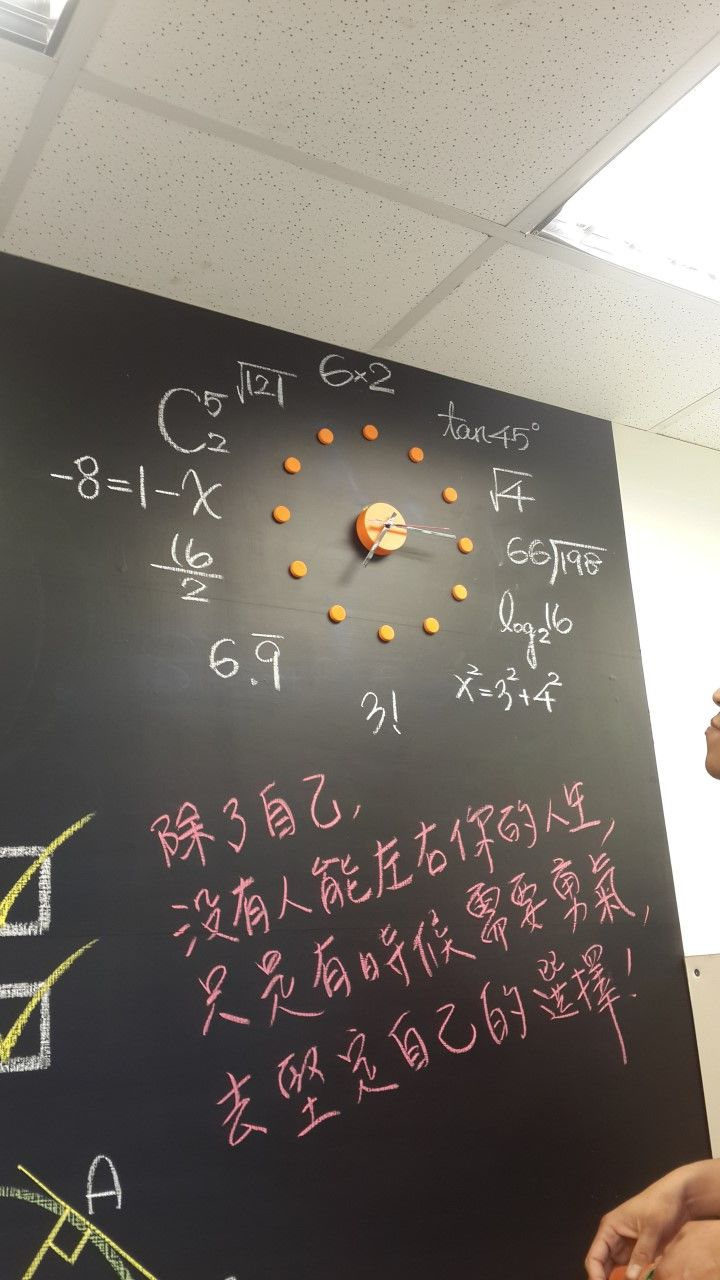 6×2
√121
tan45°
C⁵₂
√4
-8=1-x
66)198
16/2
log₂16
6.9̅
x²=3²+4²
3!
除了自己,
沒有人能左右你的人生,
只是有時候需要勇氣,
去堅定自己的選擇!
A